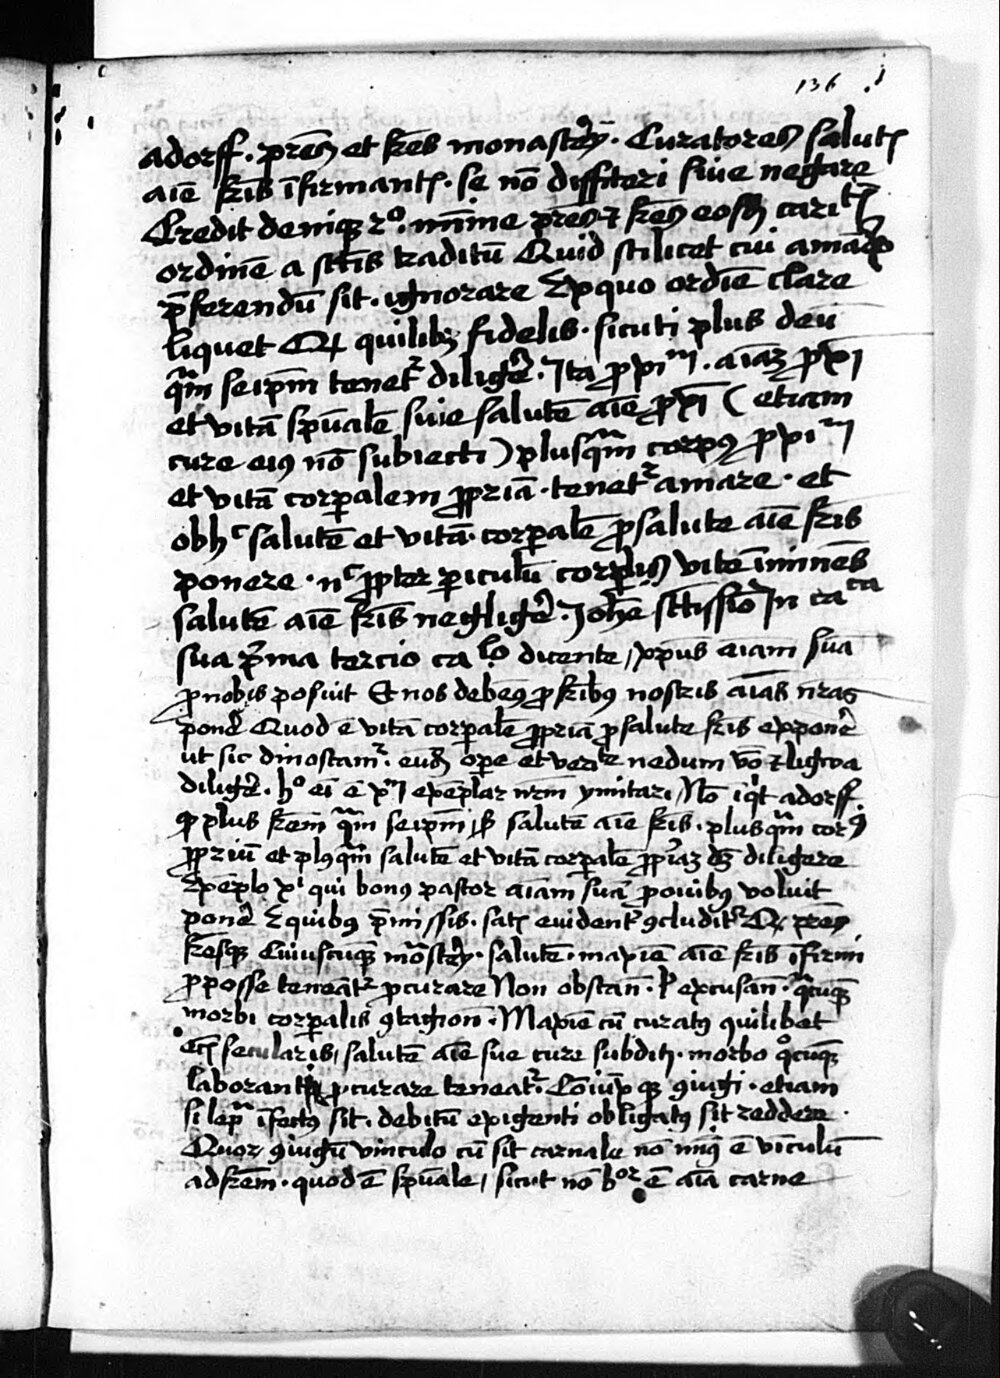 136
adorff. pres et fres monastery. Curatores salut
aie fris ifirmant. se no diffiteri siue negare
Credit deniq ro. mime pres fres eosd carit
ordine a sctis traditu Quid scilicet cui amado
pferendu sit. ignorare Exquo ordie clare
liquet Q quilibz fidelis. sicuti plus deu
qm seipm tenet diliger. Ita ppi. aiaz pxi
et vita spuale siue salute aie pxi (etiam
cure ei9 no subiecti) plusqm corp9 ppi
et vita corpalem ppria. tenet amare. et
obh salute et vita. corpale psalute aie fris
ponere. nc ppter piculu corplis vite imines
salute aie fris negliger. Johe sctissio In ca ca
sua pma tercio ca lo dicente, xpus aiam sua
pnobis posuit Et nos debem9 pfrib9 nostris aias nras
poner Quod e vita corpale ppria psalute fris exponer
ut sic dinoscam. eud ope et veri nedum vo ligwa
diliger. ho ei e xi exeplar nrm ymitari, No iqt adorff.
q plus frem qm seipm, s salute aie fris. plusqm cor9
ppriu et pl9qm salute et vita corpale ppiaz dz diligere
Exeplo xi qui bon9 pastor aiam sua pouib9 voluit
poner Equib9 pmissis. sat euident 9cludit Q pres
fresq Cuiuscuq mostery. salute. maxie aie fris ifirmi
pposse teneat pcurare Non obstan. excusan. qcuq
morbi corpalis 9tagion. Maxie cu curat9 quilibet
eci secularis, salute aie sue cure subditi. morbo qcuq
laborant pcurare teneat. Coiux q 9iugi. etiam
si lepa ifect9 sit. debitu exigenti obligat9 sit reddere.
Quor 9iugu vinculo cu sit carnale no min9 e viculu
adfrem. quod e spuale, sicut no bor e aia carne